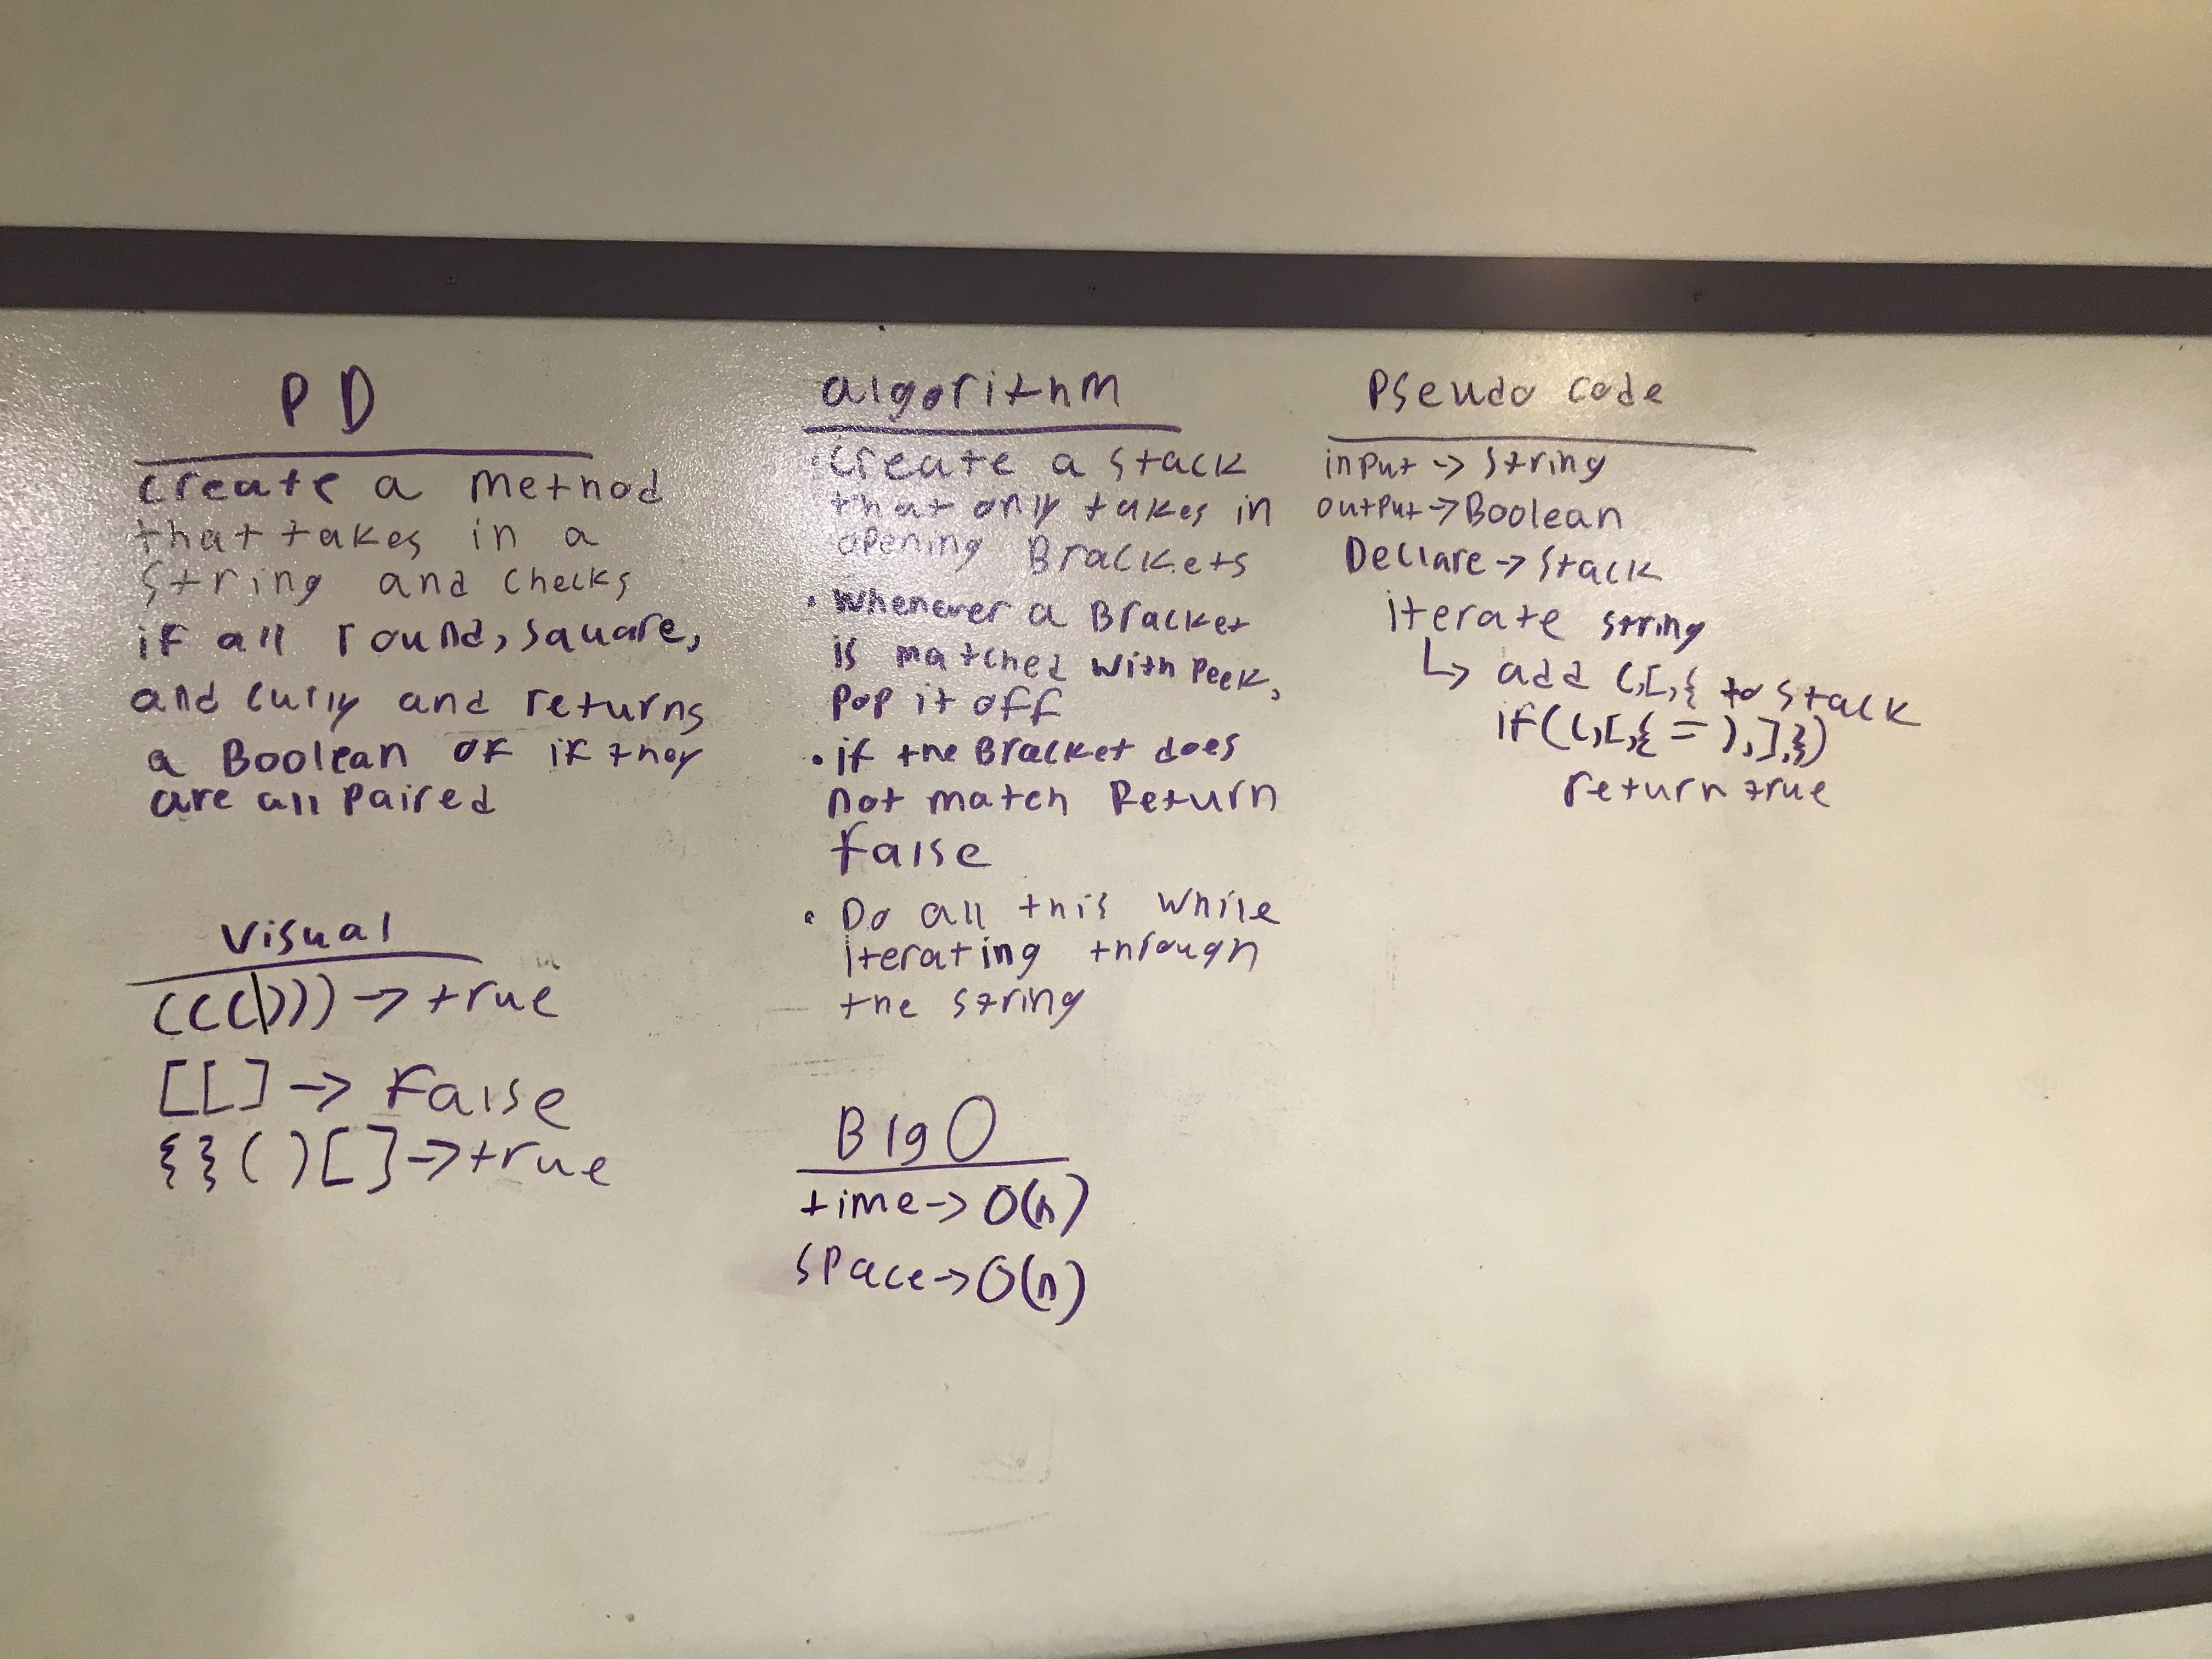 PD
create a method
that takes in a
string and checks
if all round, square,
and curly and returns
a Boolean of if they
are all paired
Visual
((()))) -> true
[[] -> False
{}()[] -> true
algorithm
create a stack
that only takes in
opening Brackets
• Whenever a Bracket
is matched with Peek,
Pop it off
• if the Bracket does
not match Return
false
• Do all this while
iterating through
the string
Big O
time -> O(n)
space -> O(n)
Pseudo code
input -> String
output -> Boolean
Declare -> Stack
iterate string
↳ add (,[,{ to stack
if((,[,{ = ),],})
return true